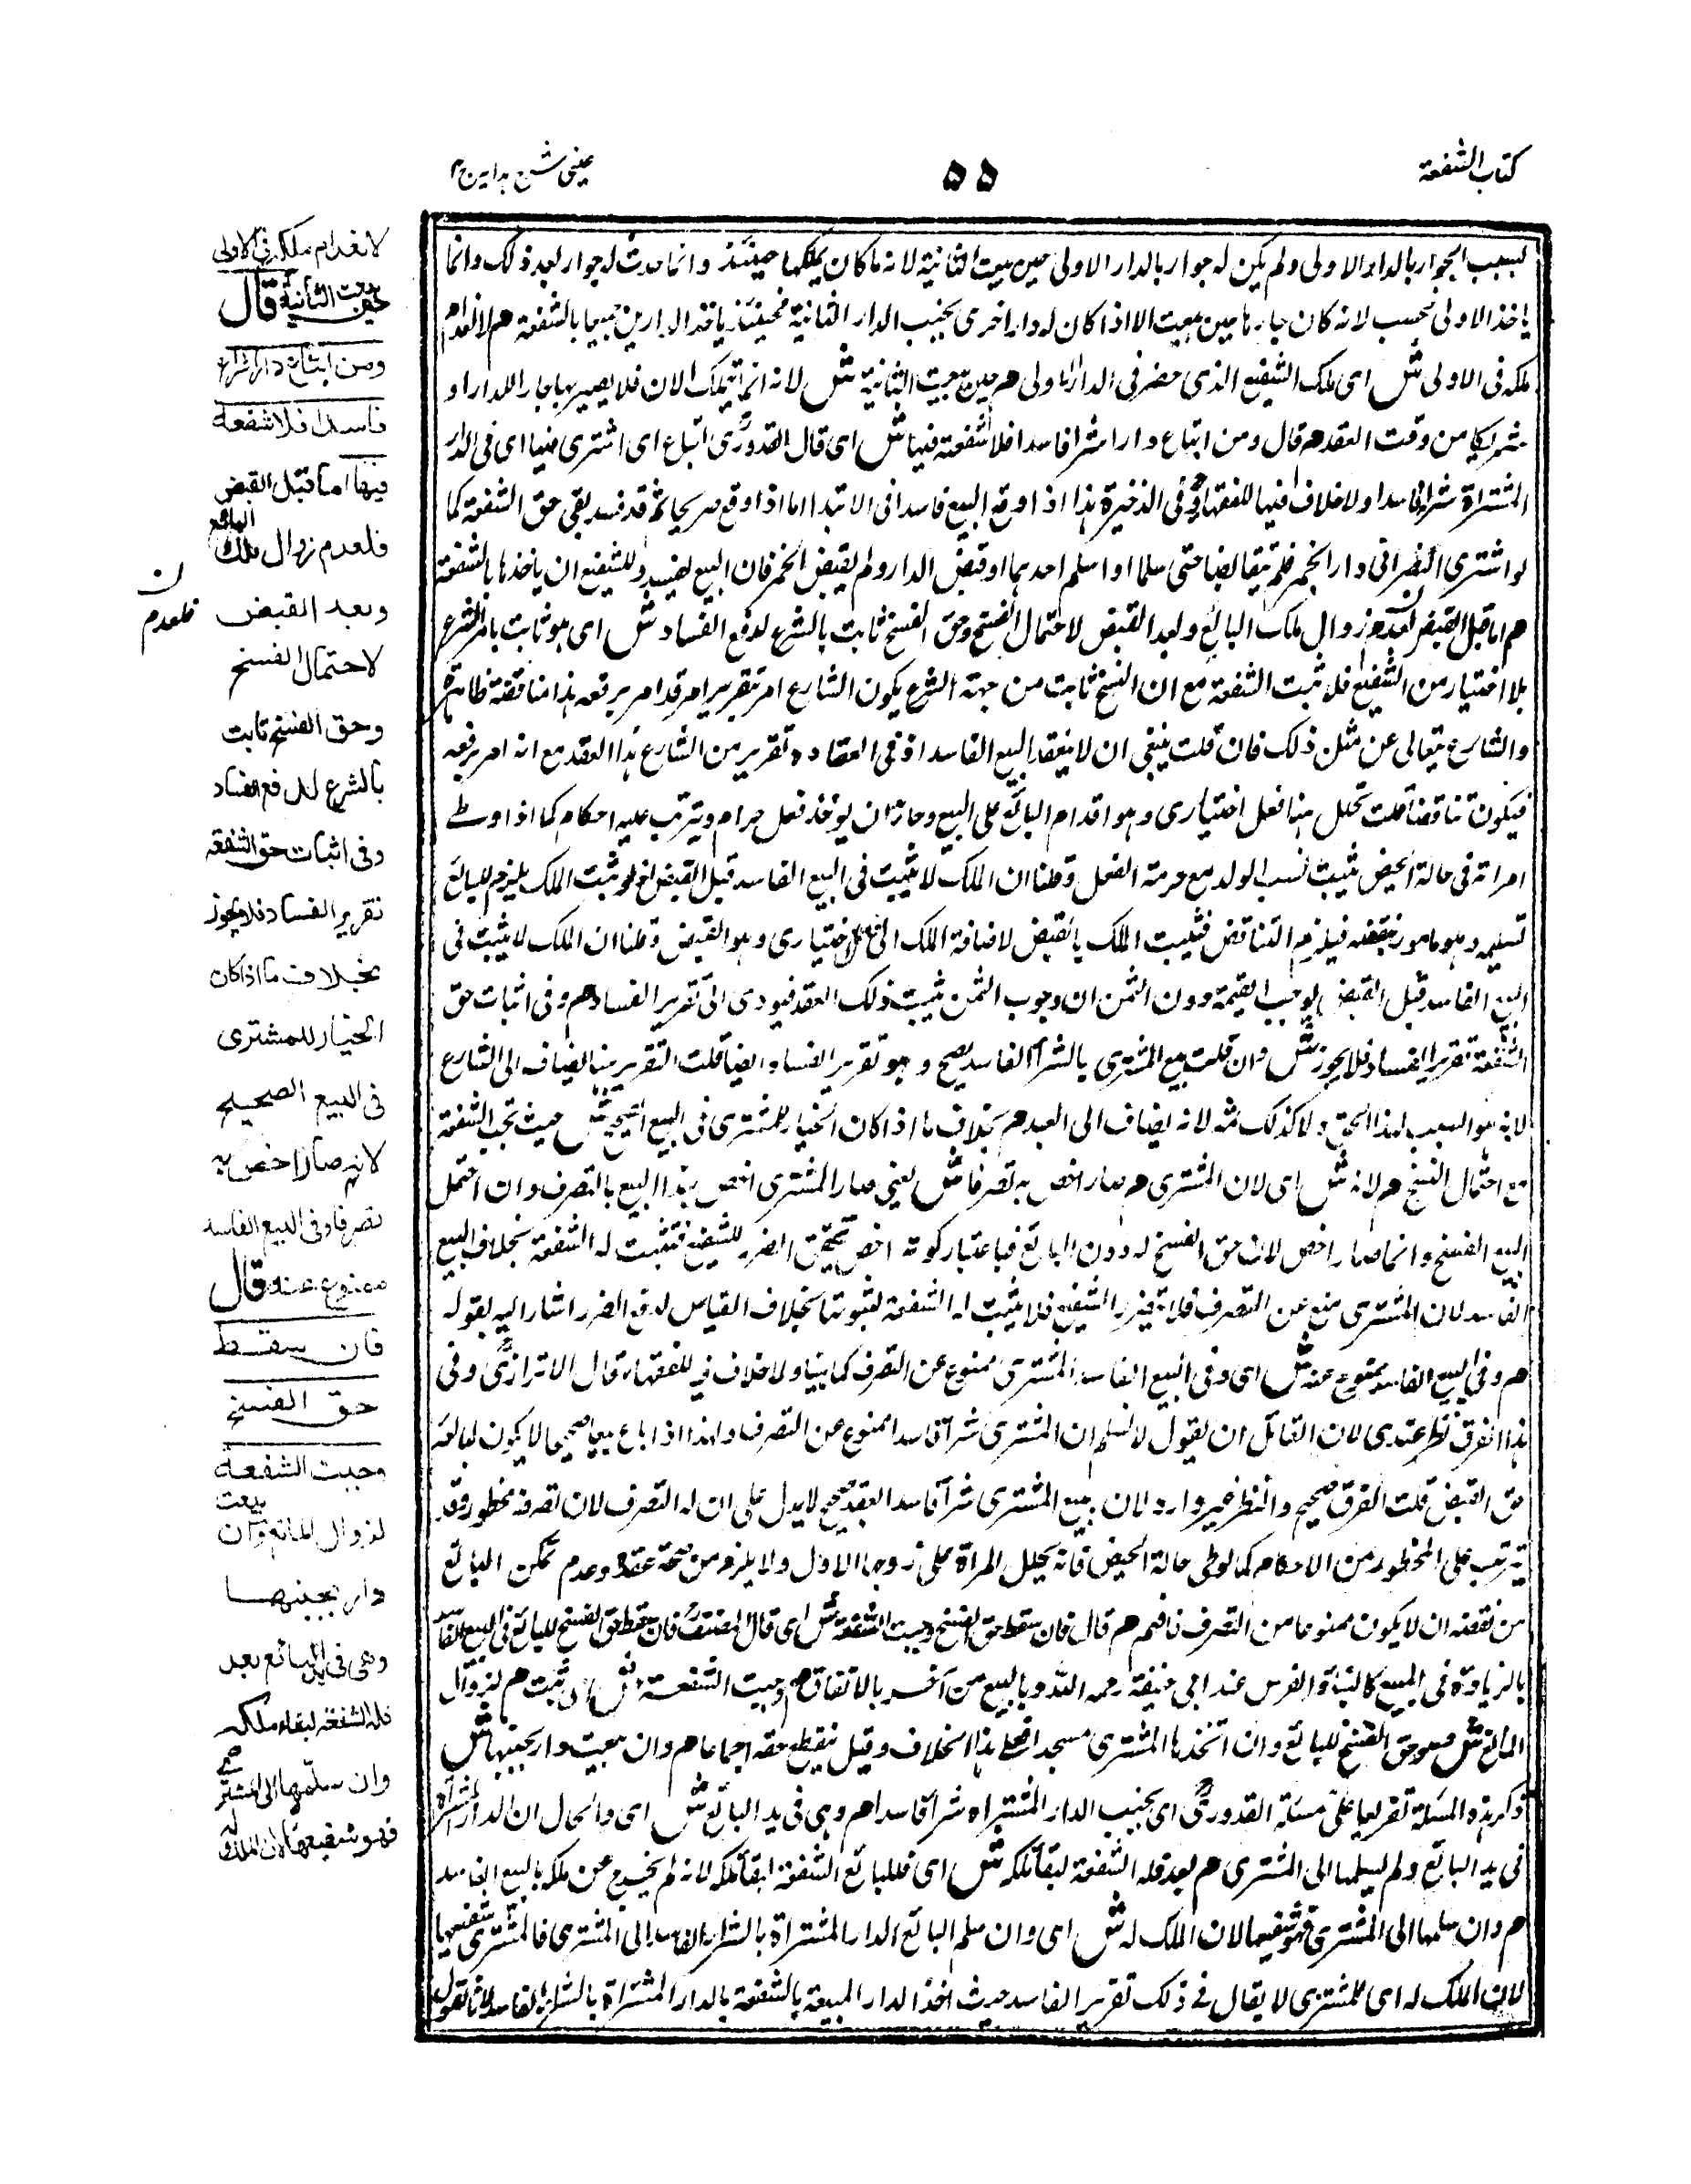 كتاب الشفعة
٥٥
عينى شرح هداية ج ٤
لسبب الجوار بالدار الاولى ولم يكن له جوار بالدار الاولى حين بيعت الثانية لانه ما كان يملكها حينئذ وانما حدث له جوار بعد ذلك وانما
ياخذ الاولى فحسب لانه كان جارها حين بيعت الا اذا كان له دار اخرى بجنب الدار الثانية فحينئذ ياخذ الدارين جميعا بالشفعة هم لانعدام
ملكه فى الاولى ش اى ملك الشفيع الذى حضر فى الدار الاولى هم حين بيعت الثانية ش لانه انما يتملك الان فلا يصير بها جار اللدار او
شريكا من وقت العقد هم قال ومن ابتاع دارا شرا فاسدا فلا شفعة فيها ش اى قال القدورى ابتاع اى اشترى فيها اى فى الدار
المشتراة شراء فاسدا ولا خلاف فيها للفقهاء وفى الذخيرة هذا اذا وقع البيع فاسدا فى الابتدا اما اذا وقع صحيحا ثم قد فسد بقى حق الشفعة كما
لو اشترى النصرانى دار الخمر فلم يتقابضا حتى سلما او اسلم احدهما او قبض الدار ولم يقبض الخمر فان البيع يفسد وللشفيع ان ياخذها بالشفعة
هم اما قبل القبض لعدم زوال ملك البائع وبعد القبض لاحتمال الفسخ وحق الفسخ ثابت بالشرع لدفع الفساد ش اى هو ثابت بامر الشرع
بلا اختيار من الشفيع فلا تثبت الشفعة مع ان الفسخ ثابت من جهة الشرع يكون الشارع امر بتقرير امر قد امر برفعه هذا مناقضة ظاهرة
والشارع يتعالى عن مثل ذلك فان قلت ينبغى ان لا ينعقد البيع الفاسد اذ فى انعقاده تقرير من الشارع هذا العقد مع انه امر برفعه
فيكون تناقضا قلت تخلل هنا فعل اختيارى وهو اقدام البائع على البيع وجاز ان يوخذ فعل حرام ويترتب عليه احكام كما اذا وطے
امراته فى حالة الحيض يثبت نسب الولد مع حرمة الفعل وقلنا ان الملك لا يثبت فى البيع الفاسد قبل القبض اذ لو ثبت الملك يلزم للبائع
تسليمه وهو مامور بنقضه فيلزم التناقض فيثبت الملك بالقبض لاضافة الملك الى الفعل الاختيارى وهو القبض وقلنا ان الملك لا يثبت فى
البيع الفاسد قبل القبض لوجب القيمة دون الثمن ان وجوب الثمن يثبت ذلك العقد فيودى الى تقرير الفساد هم وفى اثبات حق
الشفعة تقرير الفساد فلا يجوز ش فان قلت بيع المشترى بالشرآ الفاسد يصح وهو تقرير الفساد ايضا قلت التقرير هنا يضاف الى الشارع
لانه هو السبب لهذا الحق ولا كذلك ثمه لانه يضاف الى العبد هم بخلاف ما اذا كان الخيار للمشترى فى البيع الصحيح ش حيث تجب الشفعة
مع احتمال الفسخ هم لانه ش اى لان المشترى هم صار اخص به تصرفا ش يعنى صار المشترى اخص بهذا البيع بالتصرف وان احتمل
البيع الفسخ وانما صار اخص لان حق الفسخ له دون البائع فباعتبار كونه اخص تحقق الضرر للشفيع فتثبت له الشفعة بخلاف البيع
الفاسد لان المشترى منع عن التصرف فلا يتضرر الشفيع فلا يثبت له الشفعة لثبوتها بخلاف القياس لدفع الضرر اشار اليه بقوله
هم وفى البيع الفاسد ممنوع عنه ش اى وفى البيع الفاسد المشترى ممنوع عن التصرف كما بينا ولا خلاف فيه للفقهاء قال الاترازى وفى
هذا الفرق نظر عندى لان القائل ان يقول لا نسلم ان المشترى شرآ فاسدا ممنوع عن التصرف ولهذا اذا باع بيعا صحيحا لا يكون لبائعه
حق القبض قلت الفرق صحيح والنظر غير وارد لان بيع المشترى شرآ فاسدا العقد صحيح لا يدل على ان له التصرف لان تصرفه محظور وقد
يترتب على المحظور من الاحكام كما لوطى حالة الحيض فانه يحلل المراة على زوجها الاول ولا يلزم من صحة عقده وعدم تمكن البائع
من نقضه ان لا يكون ممنوعا من التصرف فافهم هم قال فان سقط حق الفسخ وجبت الشفعة ش اى قال المصنف فان سقط حق الفسخ للبائع فى البيع الفاسد
بالزيادة فى المبيع كالبناء والغرس عند ابى حنيفة رحمه الله وبالبيع من آخر بالاتفاق هم وجبت الشفعة ش اى تثبت هم لزوال
المانع ش وهو حق الفسخ للبائع وان اتخذها المشترى مسجدا فعلى هذا الخلاف وقيل ينقطع حقه اجماعا هم وان بيعت دار بجنبها ش
ذكر هذه المسئلة تفريعا على مسئلة القدورى اى بجنب الدار المشتراه شرآ فاسدا هم وهى فى يد البائع ش اى والحال ان الدار المشتراة
فى يد البائع ولم يسلمها الى المشترى هم بعد فله الشفعة لبقاء ملكه ش اى فللبائع الشفعة لبقاء ملكه لانه لم يخرج عن ملكه بالبيع الفاسد
هم وان سلمها الى المشترى فهو شفيعها لان الملك له ش اى وان سلم البائع الدار المشتراة بالشراء الفاسد الى المشترى فالمشترى شفيعها
لان الملك له اى للمشترى لا يقال فے ذلك تقرير الفاسد حيث اخذ الدار المبيعة بالشفعة بالدار المشتراة بالشراء الفاسد لانا نقول
لانعدام ملكه فى الاولى
حين بيعت الثانية قال
ومن ابتاع دارا شراء
فاسدا فلا شفعة
فيها اما قبل القبض
فلعدم زوال ملك البائع
ن
فلعدم
وبعد القبض
لاحتمال الفسخ
وحق الفسخ ثابت
بالشرع لدفع الفساد
وفى اثبات حق الشفعة
تقرير الفساد فلا يجوز
بخلاف ما اذا كان
الخيار للمشترى
فى البيع الصحيح
لانه صار اخص به
تصرفا وفى البيع الفاسد
ممنوع عنه قال
فان سقط
حق الفسخ
وجبت الشفعة
لزوال المانع وان بيعت
دار بجنبها
وهى فى يد البائع بعد
فله الشفعة لبقاء ملكه
وان سلمها الى المشترى
فهو شفيعها لان الملك له